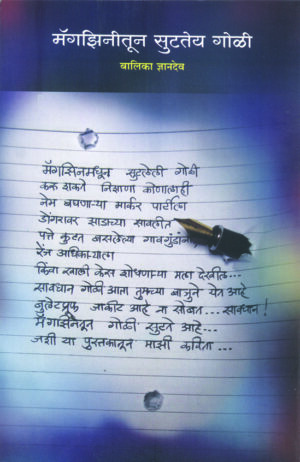 मॅगझिनीतून सुटतेय गोळी
बालिका ज्ञानदेव
मॅगझिनमधून सुटलेली गोळी
करू शकते निशाणा कोणालाही
नेम बघणाऱ्या मार्कर पार्टीला
डोंगरावर झाडाच्या सावलीत
पत्ते कुटत बसलेल्या गावगुंडांना
रेंज अधिकाऱ्याला
किंवा खाली केस शोधणाऱ्या मला देखील...
सावधान गोळी आता तुमच्या बाजूने येत आहे
बुलेटप्रूफ जाकीट आहे ना सोबत... सावधान!
मॅगझिनीतून गोळी सुटते आहे...
जशी या पुस्तकातून माझी कविता...